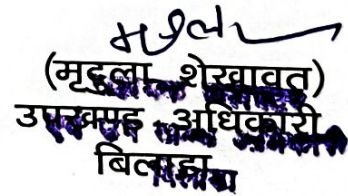 (मृदुला शेखावत)
उपखण्ड अधिकारी
बिलाड़ा